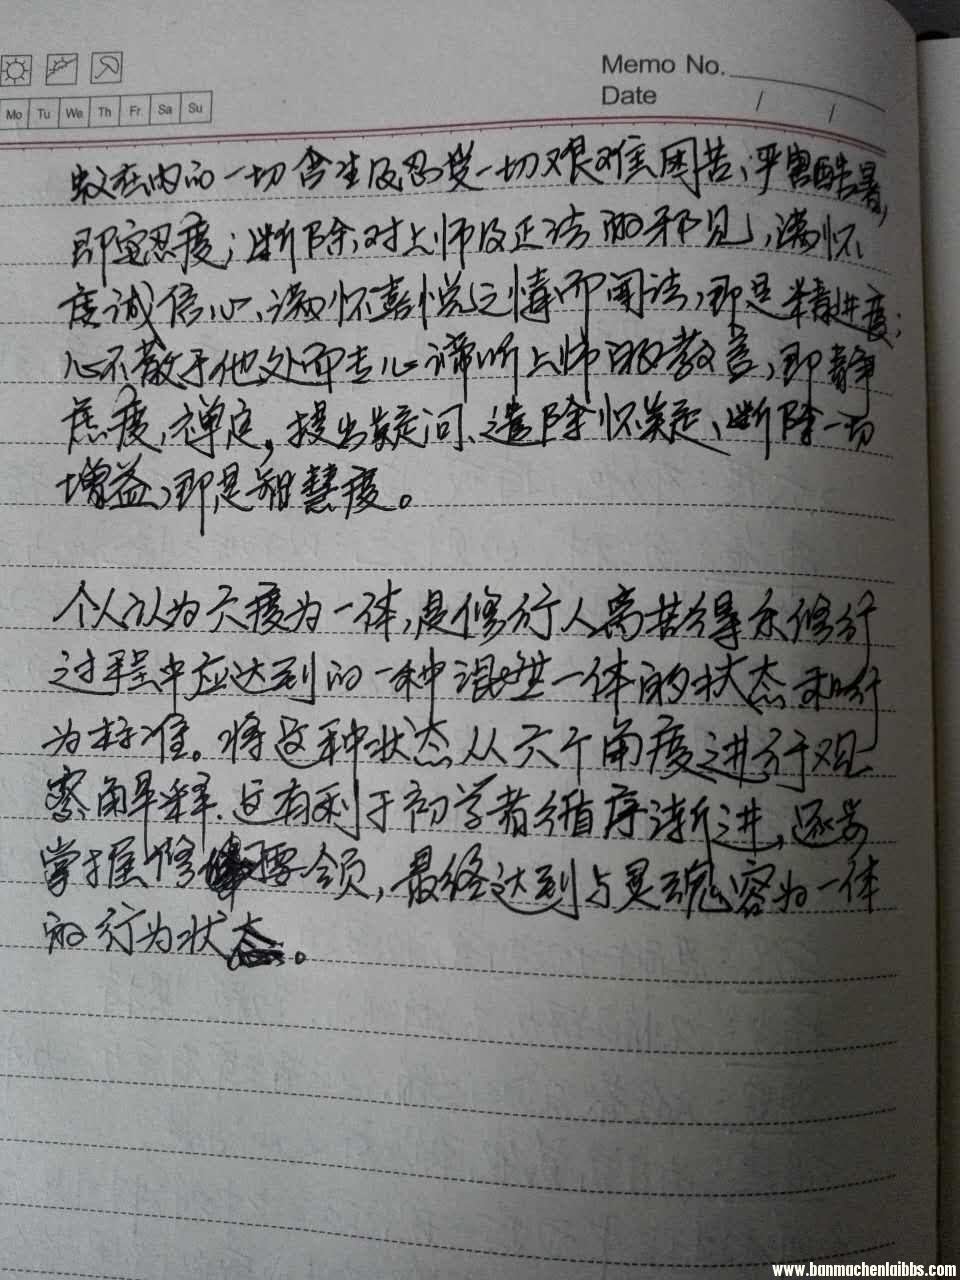 Memo No.
Date / /
Mo Tu We Th Fr Sa Su
蚁在内的一切含生及忍受一切艰难困苦、严寒酷暑,
即安忍度;断除对上师及正法的邪见,满怀
虔诚信心、满怀喜悦之情而闻法,即是精进度;
心不散于他处而专心谛听上师的教言,即静
虑度,禅定。提出疑问、遣除怀疑、断除一切
增益,即是智慧度。
个人认为六度为一体,是修行人离苦得乐修行
过程中应达到的一种混然一体的状态和行
为标准。将这种状态从六个角度进行观
察解释.这有利于初学者循序渐进,逐步
掌握修要领,最终达到与灵魂容为一体
的行为状态。
www.banmachenlaibbs.com